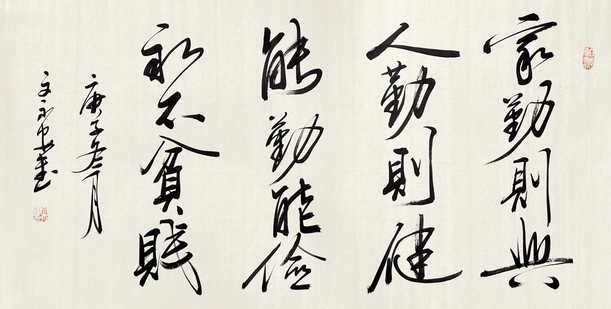 家勤則興
人勤則健
能勤能儉
永不貧賤
庚子月
文永書